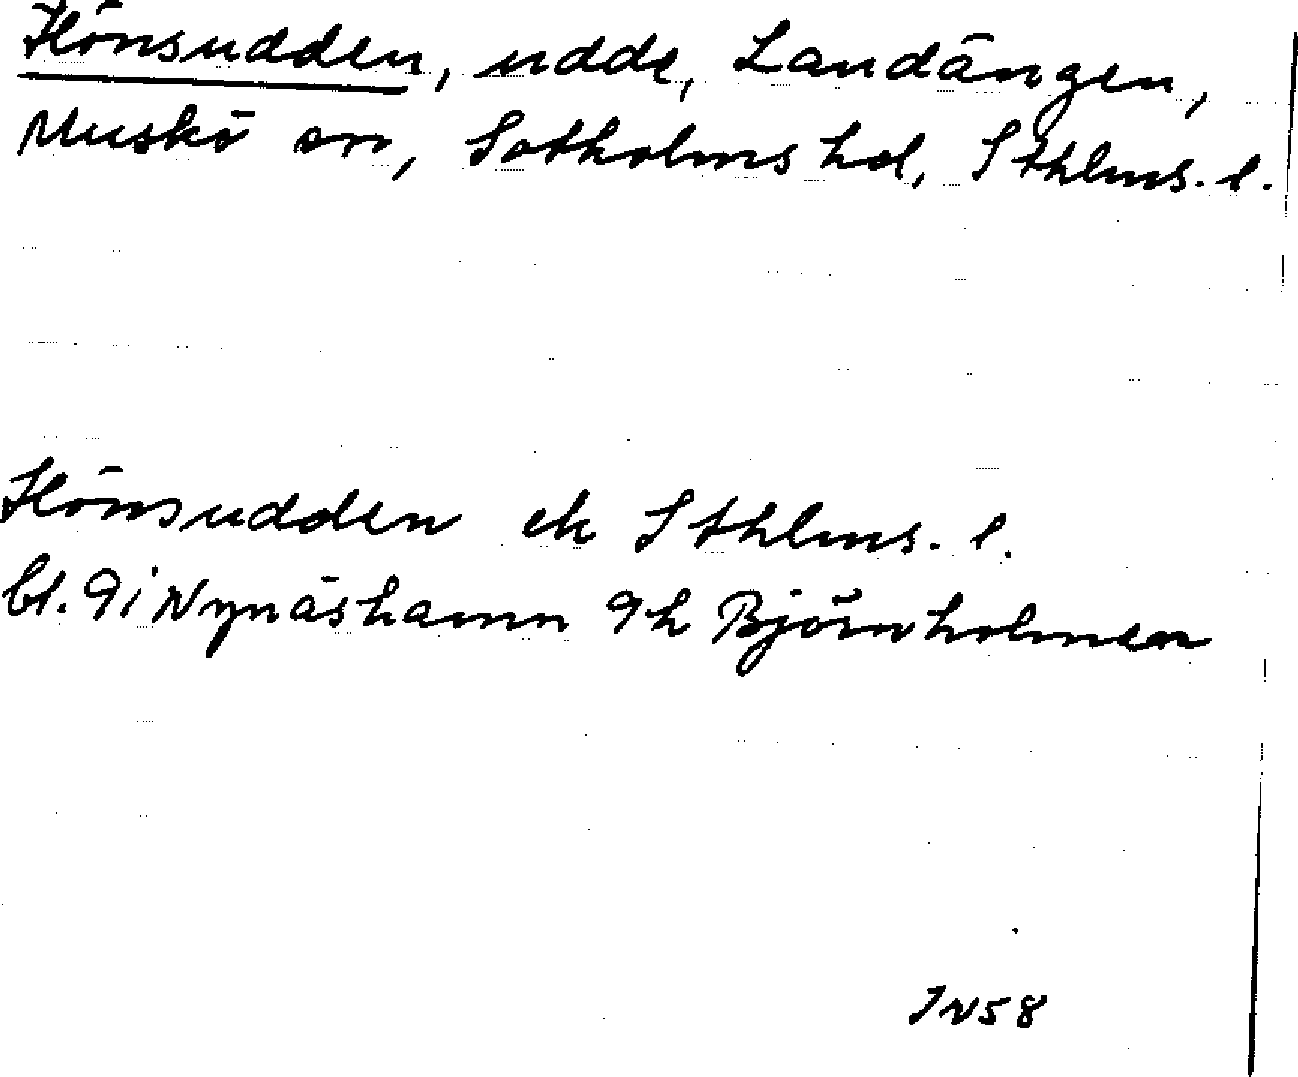 Hönsudden, udde, Landängen,
Muskö sn, Sotholms hd, Sthlms. l.
Hönsudden ek Sthlms. l.
bl. 9i Nynäshamn 9h Björnholmen
IN58